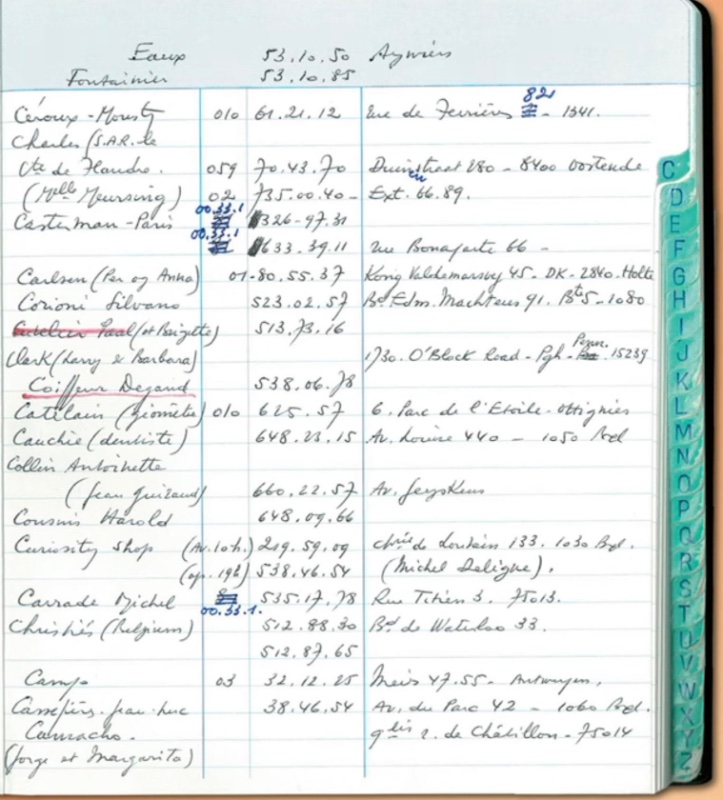 Eaux 53.10.50 Aywiers
Fontainier 53.10.85
821
Céroux-Mousty 010 61.21.12 Rue de Ferrières - 1341.
Charles (S.A.R. le
Cte de Flandre. 059 70.43.70 Duinstraat 280 - 8400 Oostende
(Melle Meursing) 02 735.00.40 - Ext. 66.89.
00.33.1
Casterman-Paris 326-97.31
00.33.1
633.39.11 rue Bonaparte 66 -
Carlsen (Per og Anna) 01-80.55.37 Kong Valdemarsvej 45 - DK-2840. Holte
Corioni Silvano 523.02.57 Bd Edm. Machtens 91. Bte 5-1080
Paul (et Brigitte) 513.73.16
Clark (Larry & Barbara) 1730. O'Block Road - Pgh - Penn. 15239
Coiffeur Degand 538.06.78
Catelain (géomètre) 010 625.57 6. Parc de l'Etoile - Ottignies
Cauchie (dentiste) 648.23.15 Av. Louise 440 - 1050 Bxl
Collin Antoinette
(Jean Guiraud) 660.22.57 Av.
Cousins Harold 648.09.66
Curiosity Shop (Av. 10h.) 219.59.09 Chée de Louvain 133. 1030 Bxl.
(ap. 19h) 538.46.54 (Michel Deligne).
Carrade Michel 535.17.78 Rue Titien 3. 75013.
00.33.1.
Christiés (Belgium) 512.88.30 Bd de Waterloo 33.
512.87.65
Camp 03 32.12.25 Meir 47.55 - Antwerpen.
Cassefiers. Jean-Luc 38.46.54 Av. du Parc 42 - 1060 Bxl.
Camacho. 9 bis r. de Châtillon - 75014
(Jorge et Margarita)
C
D
E
F
G
H
I
J
K
L
M
N
O
P
Q
R
S
T
U
V
W
X
Y
Z